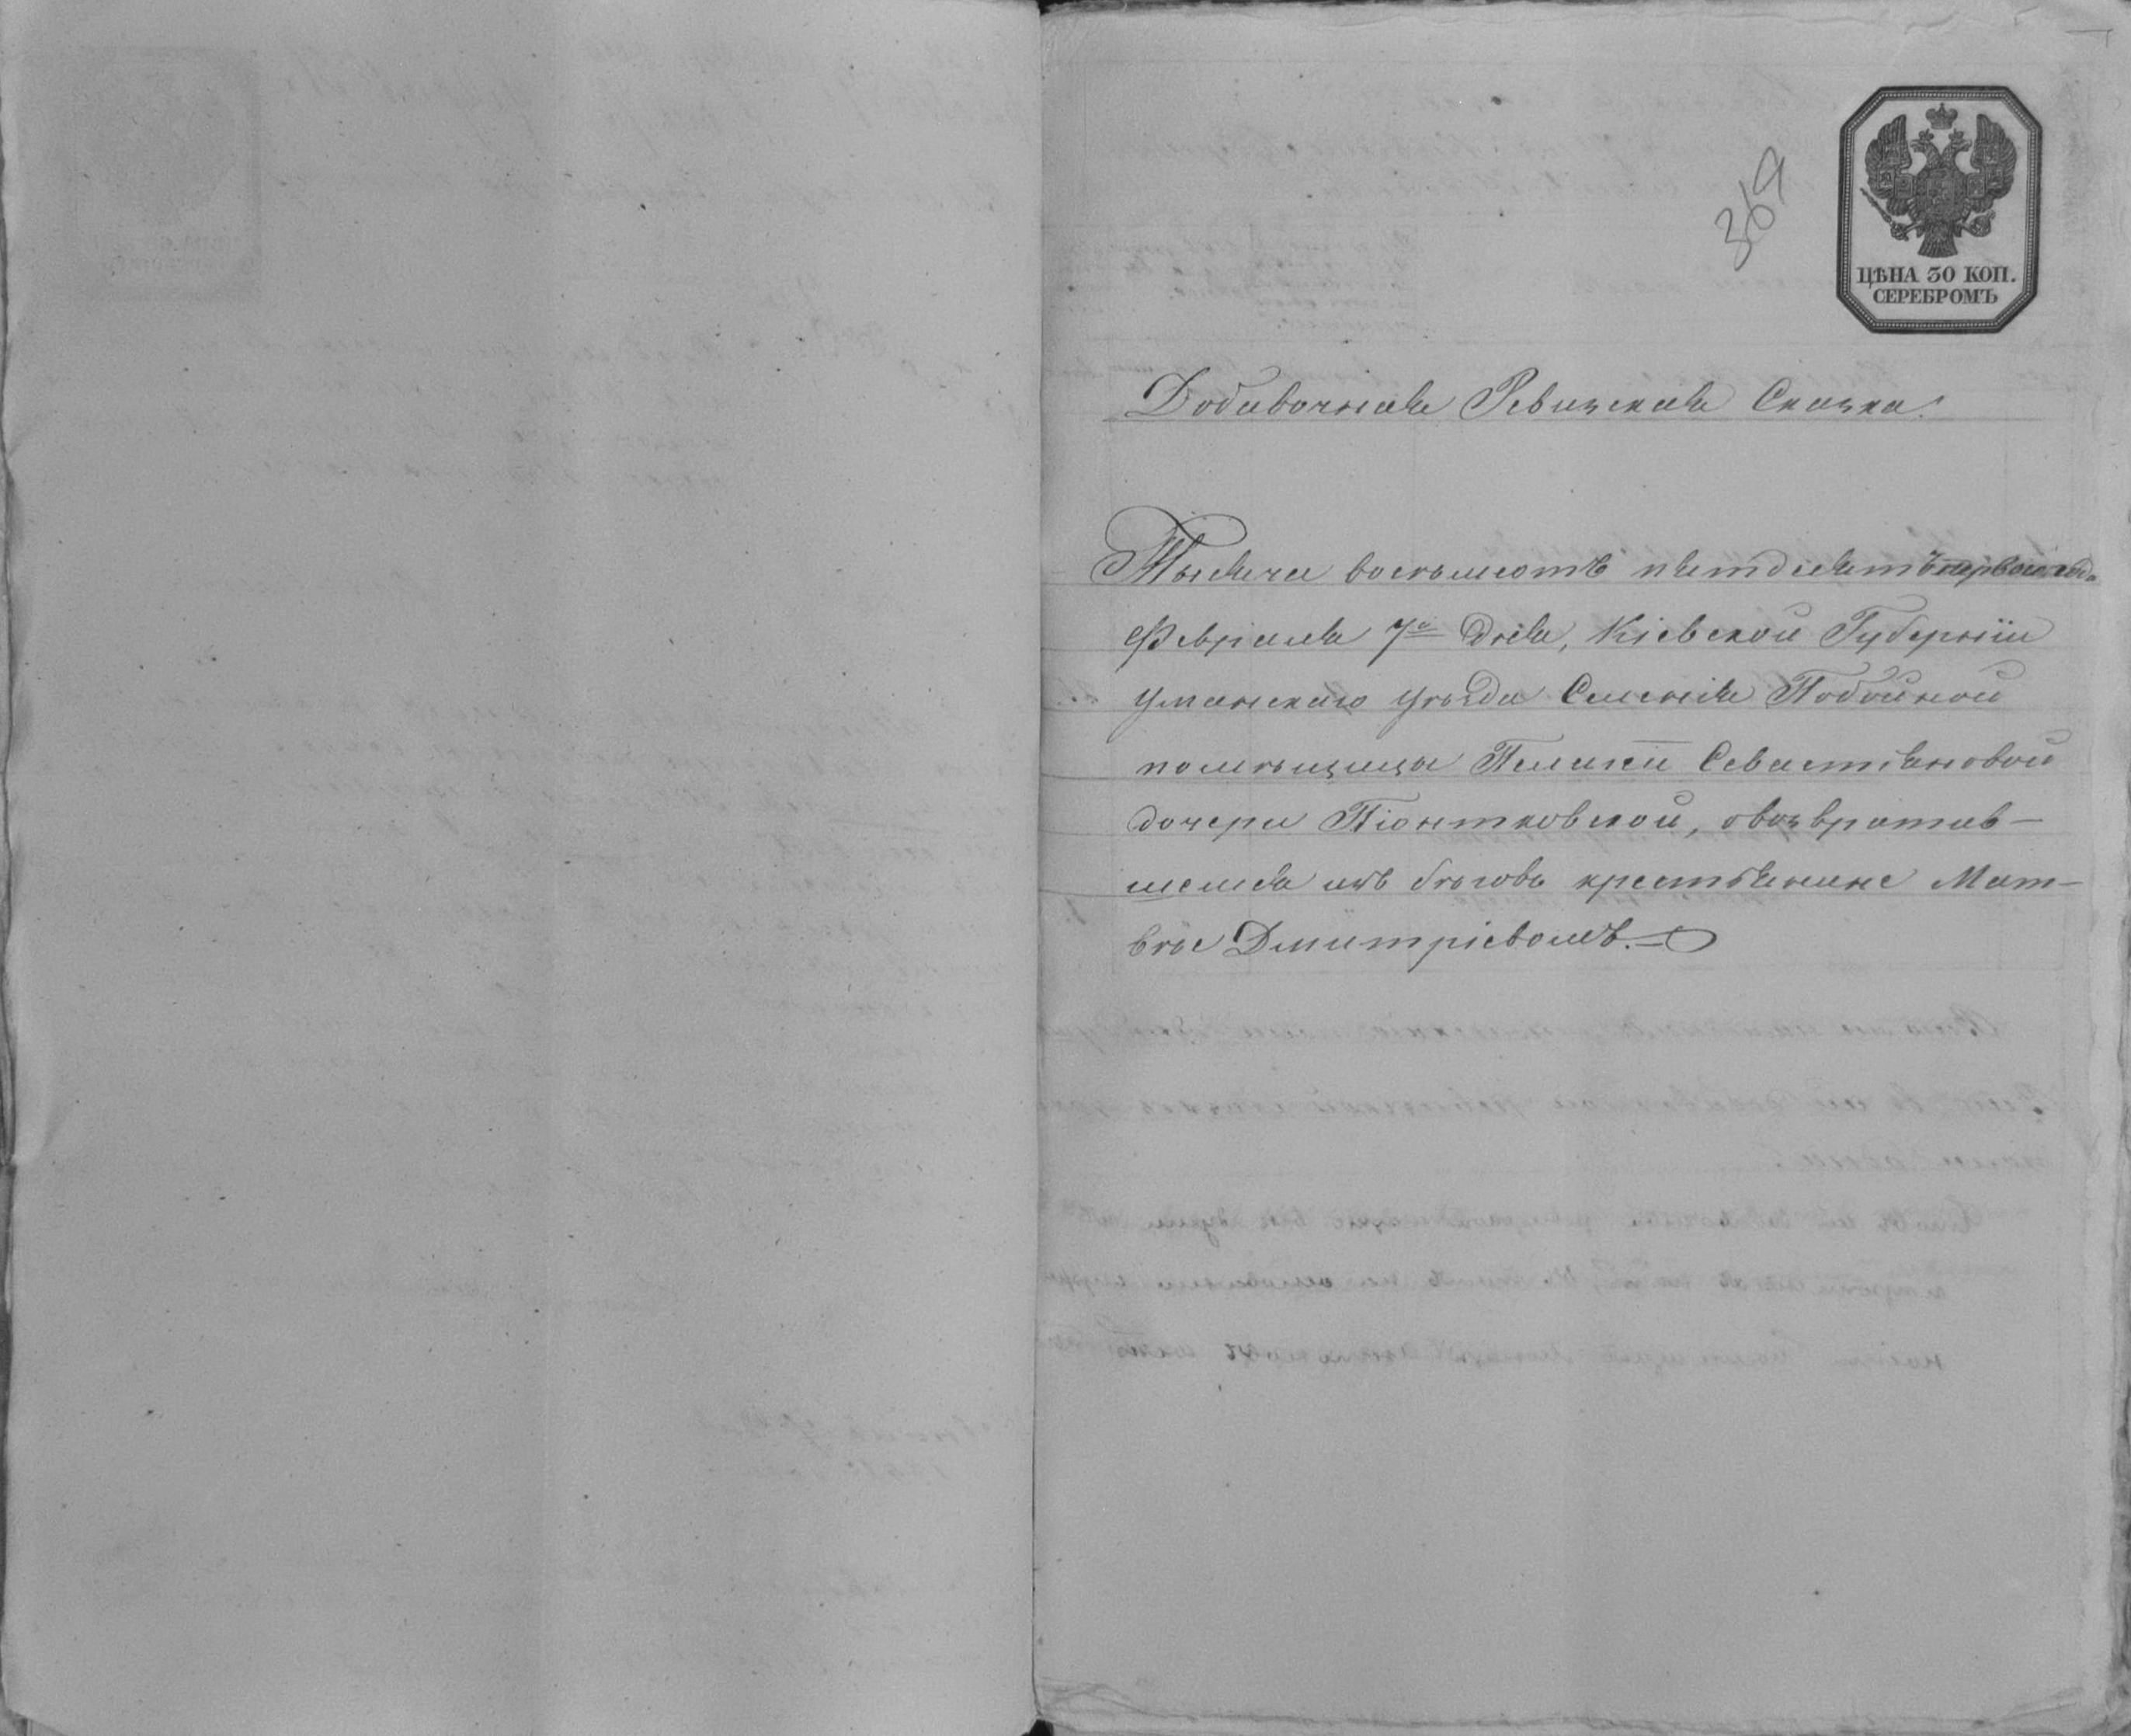 369
ЦѢНА 30 КОП.
СЕРЕБРОМЪ
Добавочная Ревизская Сказка.
Тысяча восемьсотъ пятдесятъ первого года
Февраля 7го Дня, Кіевской Губерніи
Уманскаго Уѣзда Селенія Побойной
помѣщицы Пелагіи Севастіяновой
дочери Піонтковской, овозвратив-
шемся изъ бѣговъ крестьянине Мат-
вѣе Дмитріевомъ.